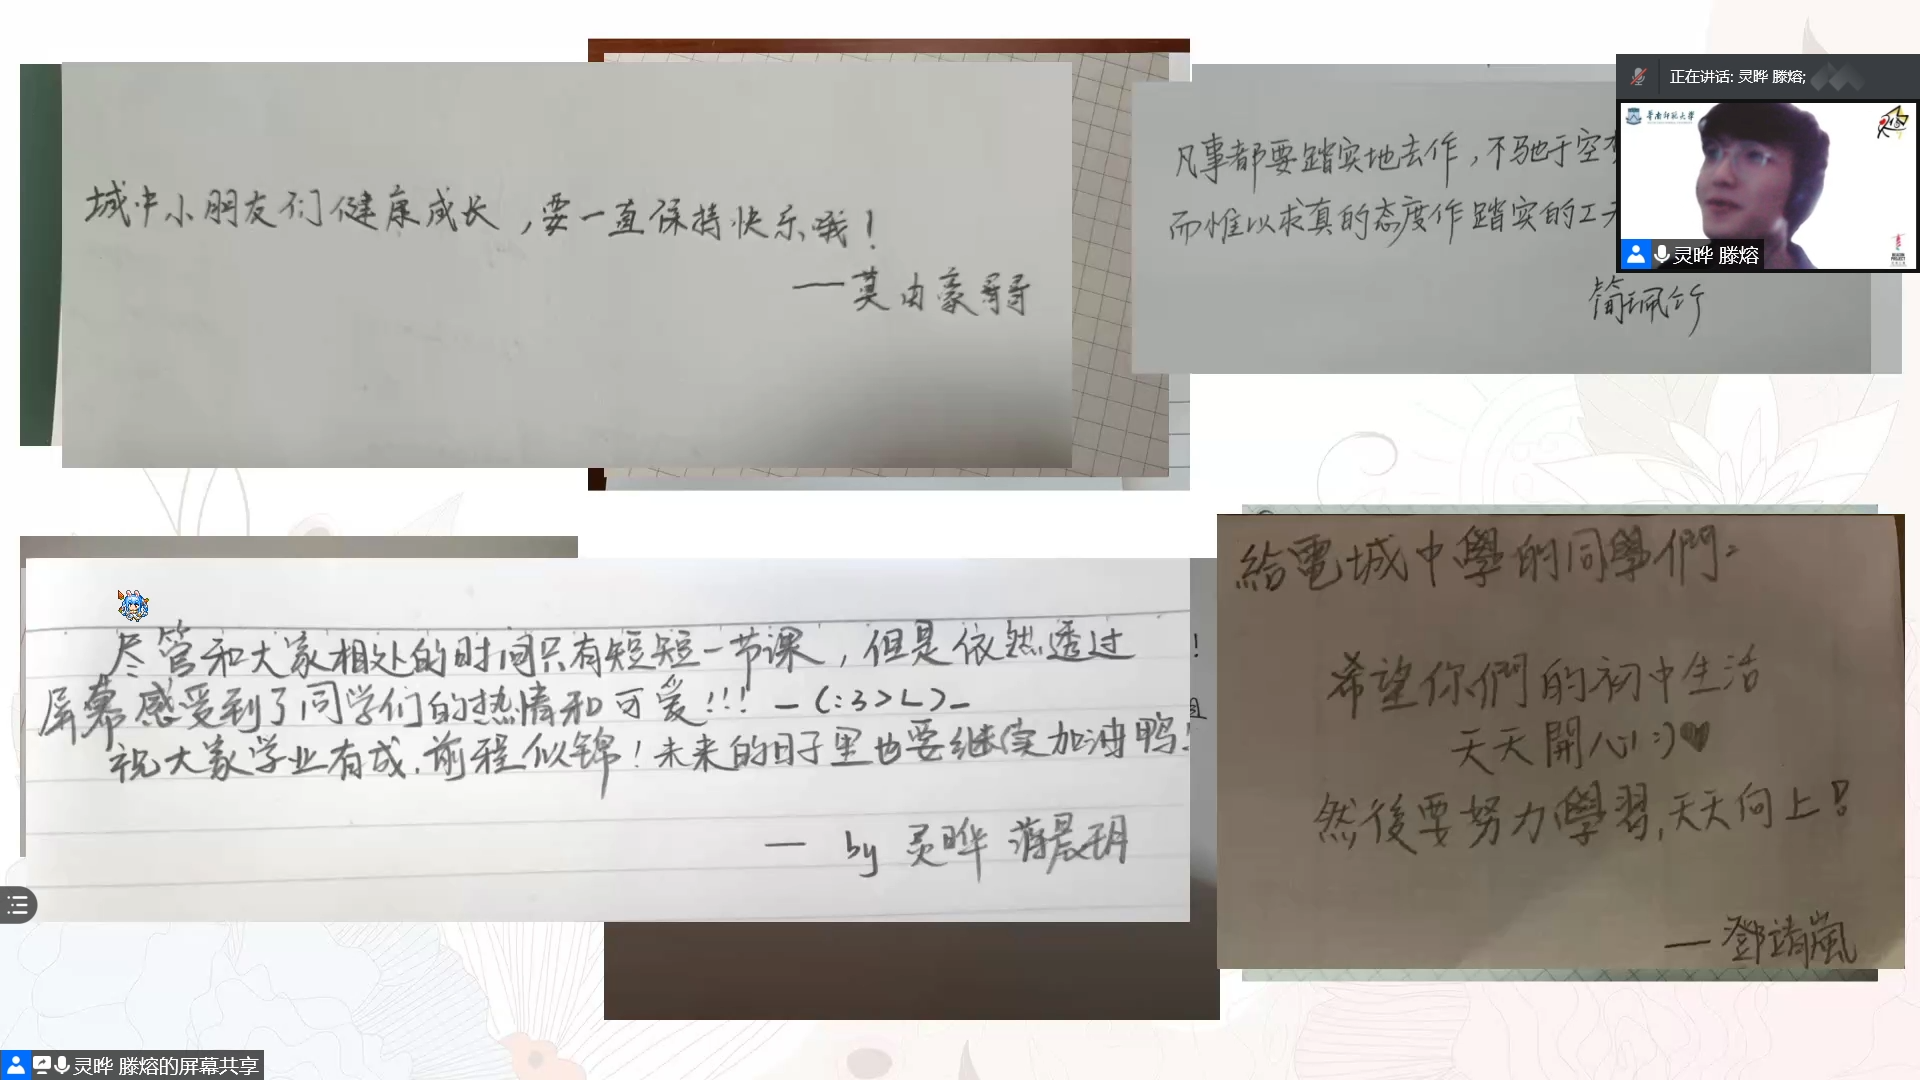 城中小朋友们健康成长，要一直保持快乐哦！
凡事都要踏实地去作，不驰于空
而惟以求真的态度作踏实的工
简珮竹
正在讲话: 灵晔 滕熔;
华南师范大学
灵晔 滕熔
尽管和大家相处的时间只有短短一节课，但是依然透过
屏幕感受到了同学们的热情和可爱！！！ —(:3>∠)—
祝大家学业有成，前程似锦！未来的日子里也要继续加油鸭！
— by 灵晔 蒋晨玥
給電城中學的同學們：
希望你們的初中生活
天天開心:)♥
然後要努力學習，天天向上！
— 鄧靖嵐
灵晔 滕熔的屏幕共享